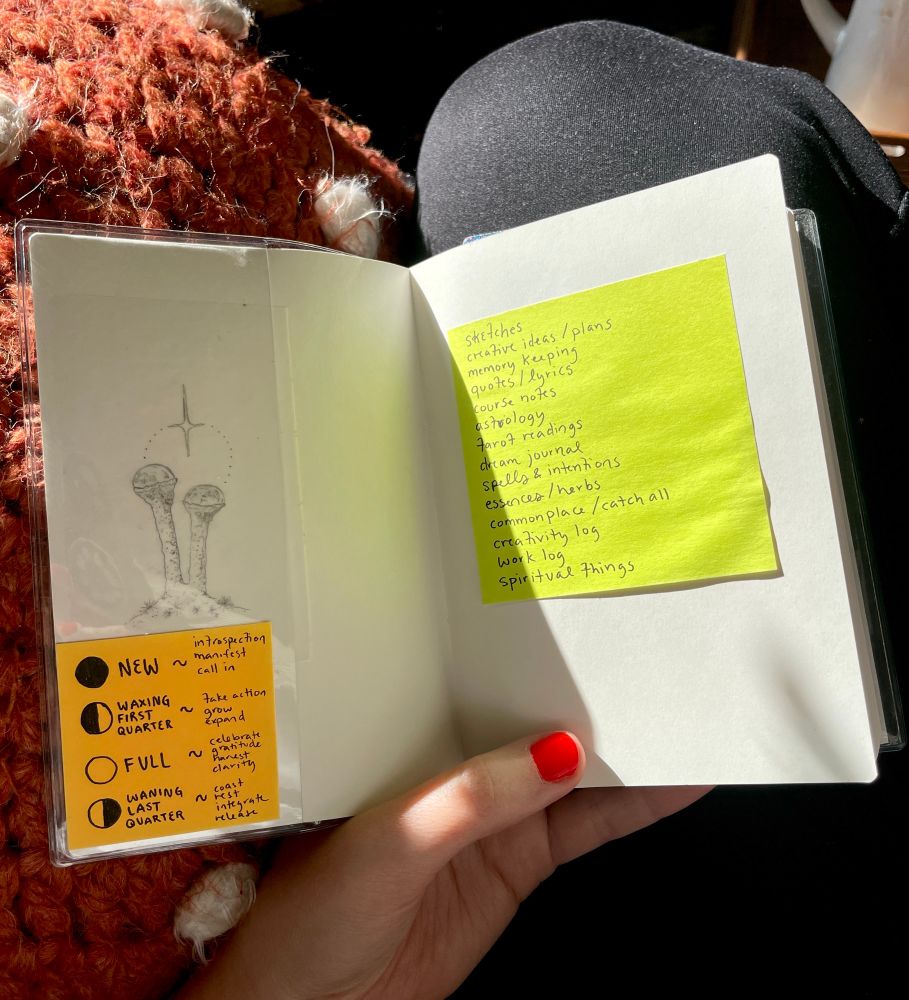 NEW ~ introspection
manifest
call in
WAXING
FIRST
QUARTER ~ take action
grow
expand
FULL ~ celebrate
gratitude
harvest
clarity
WANING
LAST
QUARTER ~ coast
rest
integrate
release
sketches
creative ideas/plans
memory keeping
quotes/lyrics
course notes
astrology
tarot readings
dream journal
spells & intentions
essences/herbs
commonplace/catch all
creativity log
work log
spiritual things